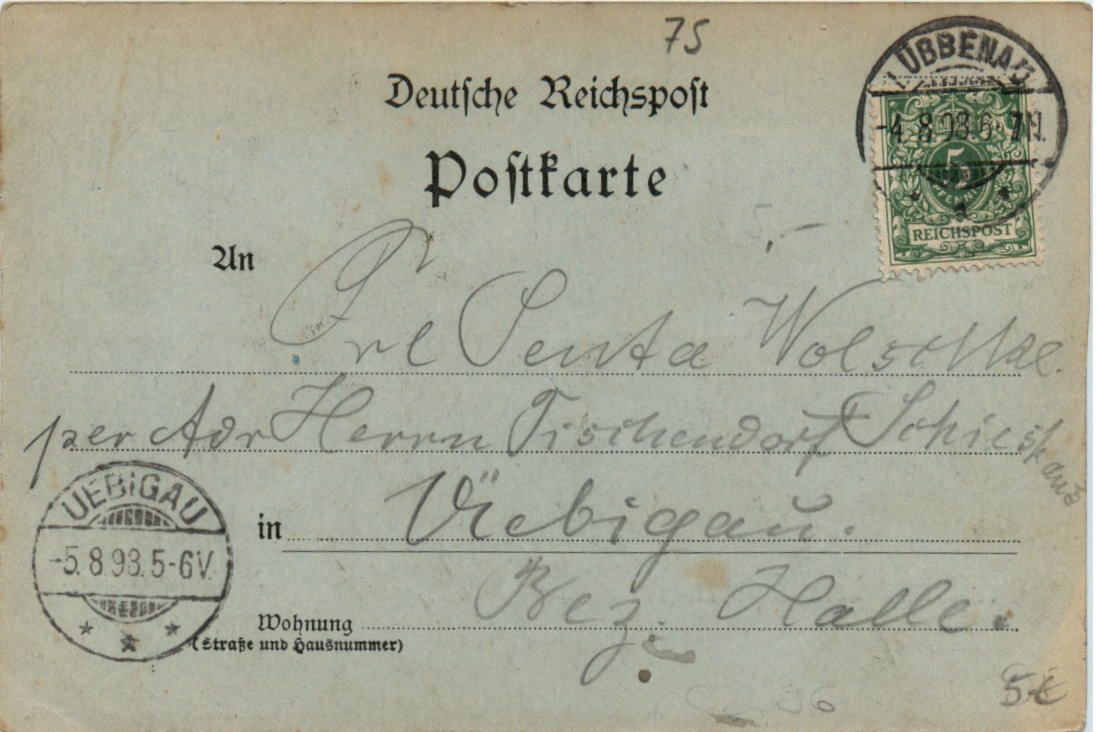 75
Deutsche Reichspost
Postkarte
LÜBBENAU
-4.8.98.6-7N.
5
REICHSPOST
5.-
An
Frl Senta
per Adr Herrn Tischendorf Schiesshaus
UEBIGAU
-5.8.98.5-6V.
in
Uebigau.
Bez. Halle.
Wohnung
(Straße und Hausnummer)
5€